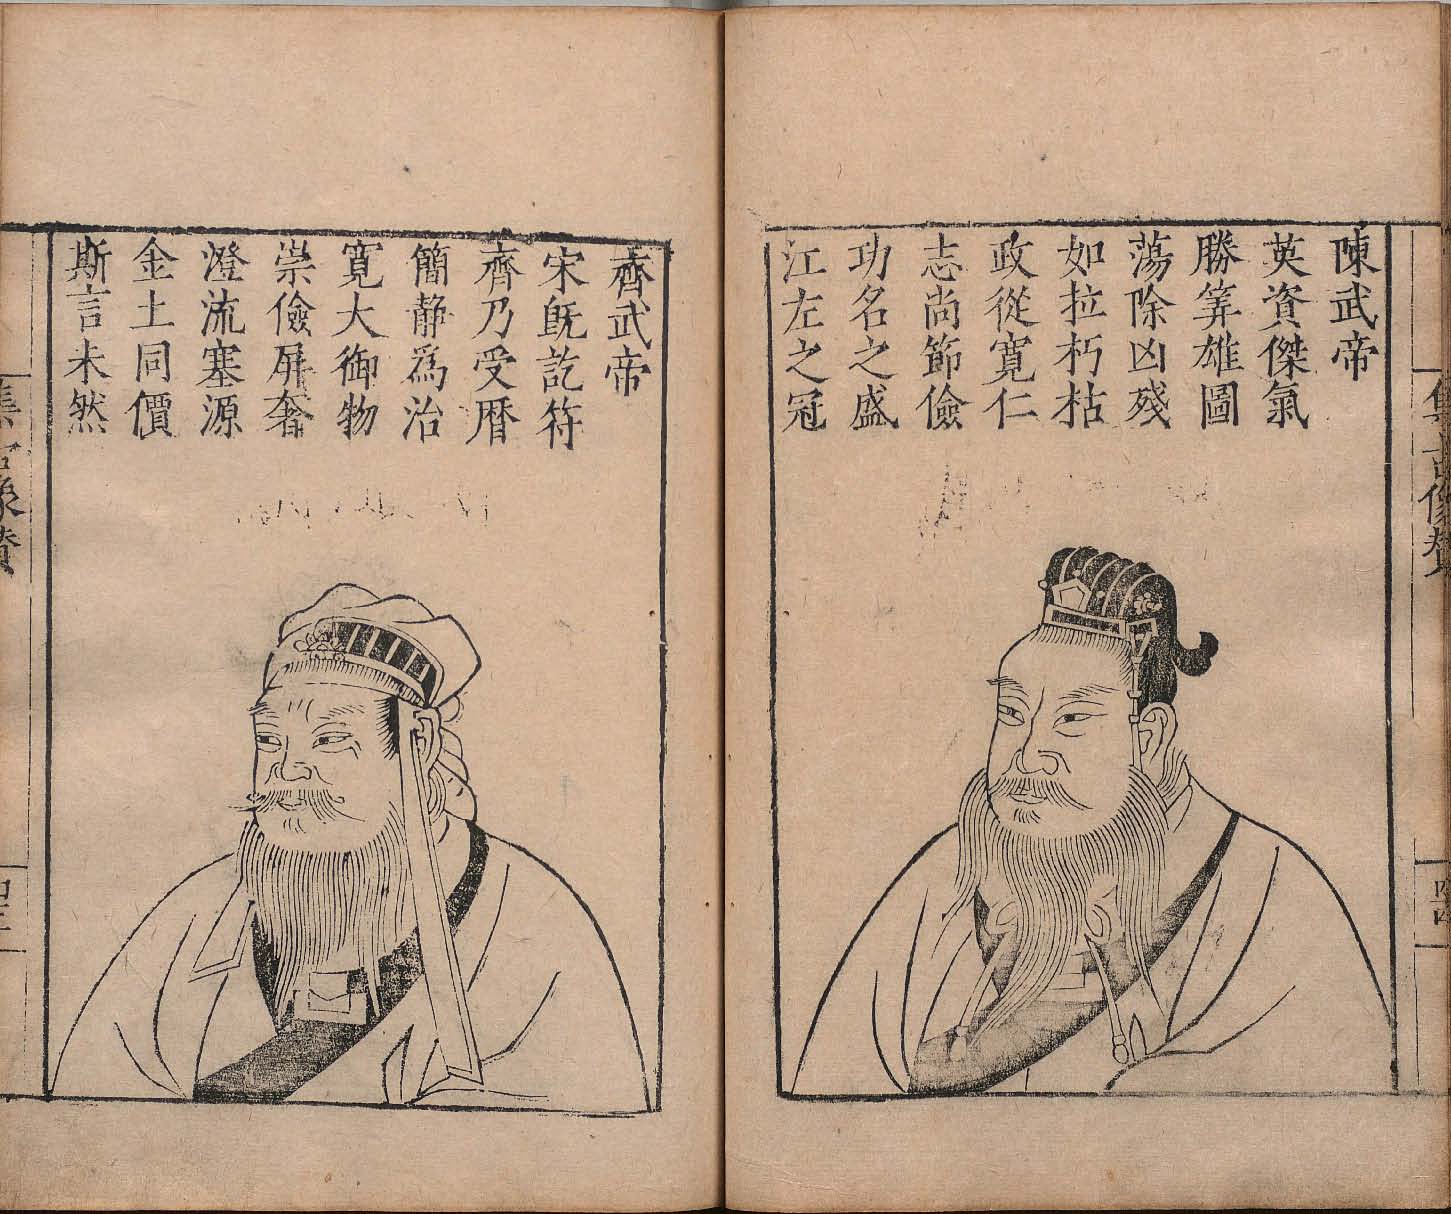 陳武帝
英資傑氣
勝筭雄圖
蕩除凶殘
如拉朽枯
政從寬仁
志尚節儉
功名之盛
江左之冠
齊武帝
宋旣訖符
齊乃受曆
簡静爲治
寛大御物
崇儉屏奢
澄流塞源
金土同價
斯言未然
集古像贊
集古像贊